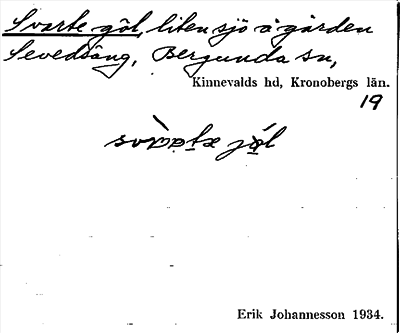 Svarte göl, liten sjö å gården
Sevedsäng, Bergunda sn,
Kinnevalds hd, Kronobergs län.
19
Erik Johannesson 1934.